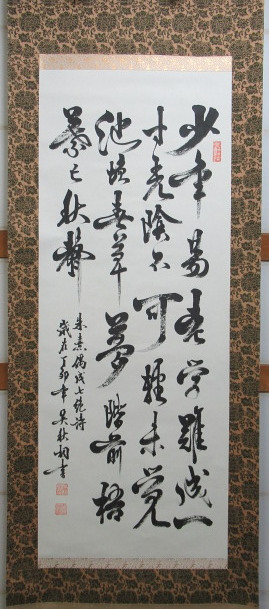 少年易老学難成一
寸光陰不可軽未覚
池塘春草夢階前梧
葉已秋聲
朱熹偶成七絶詩
歳在丁卯年吳秋書